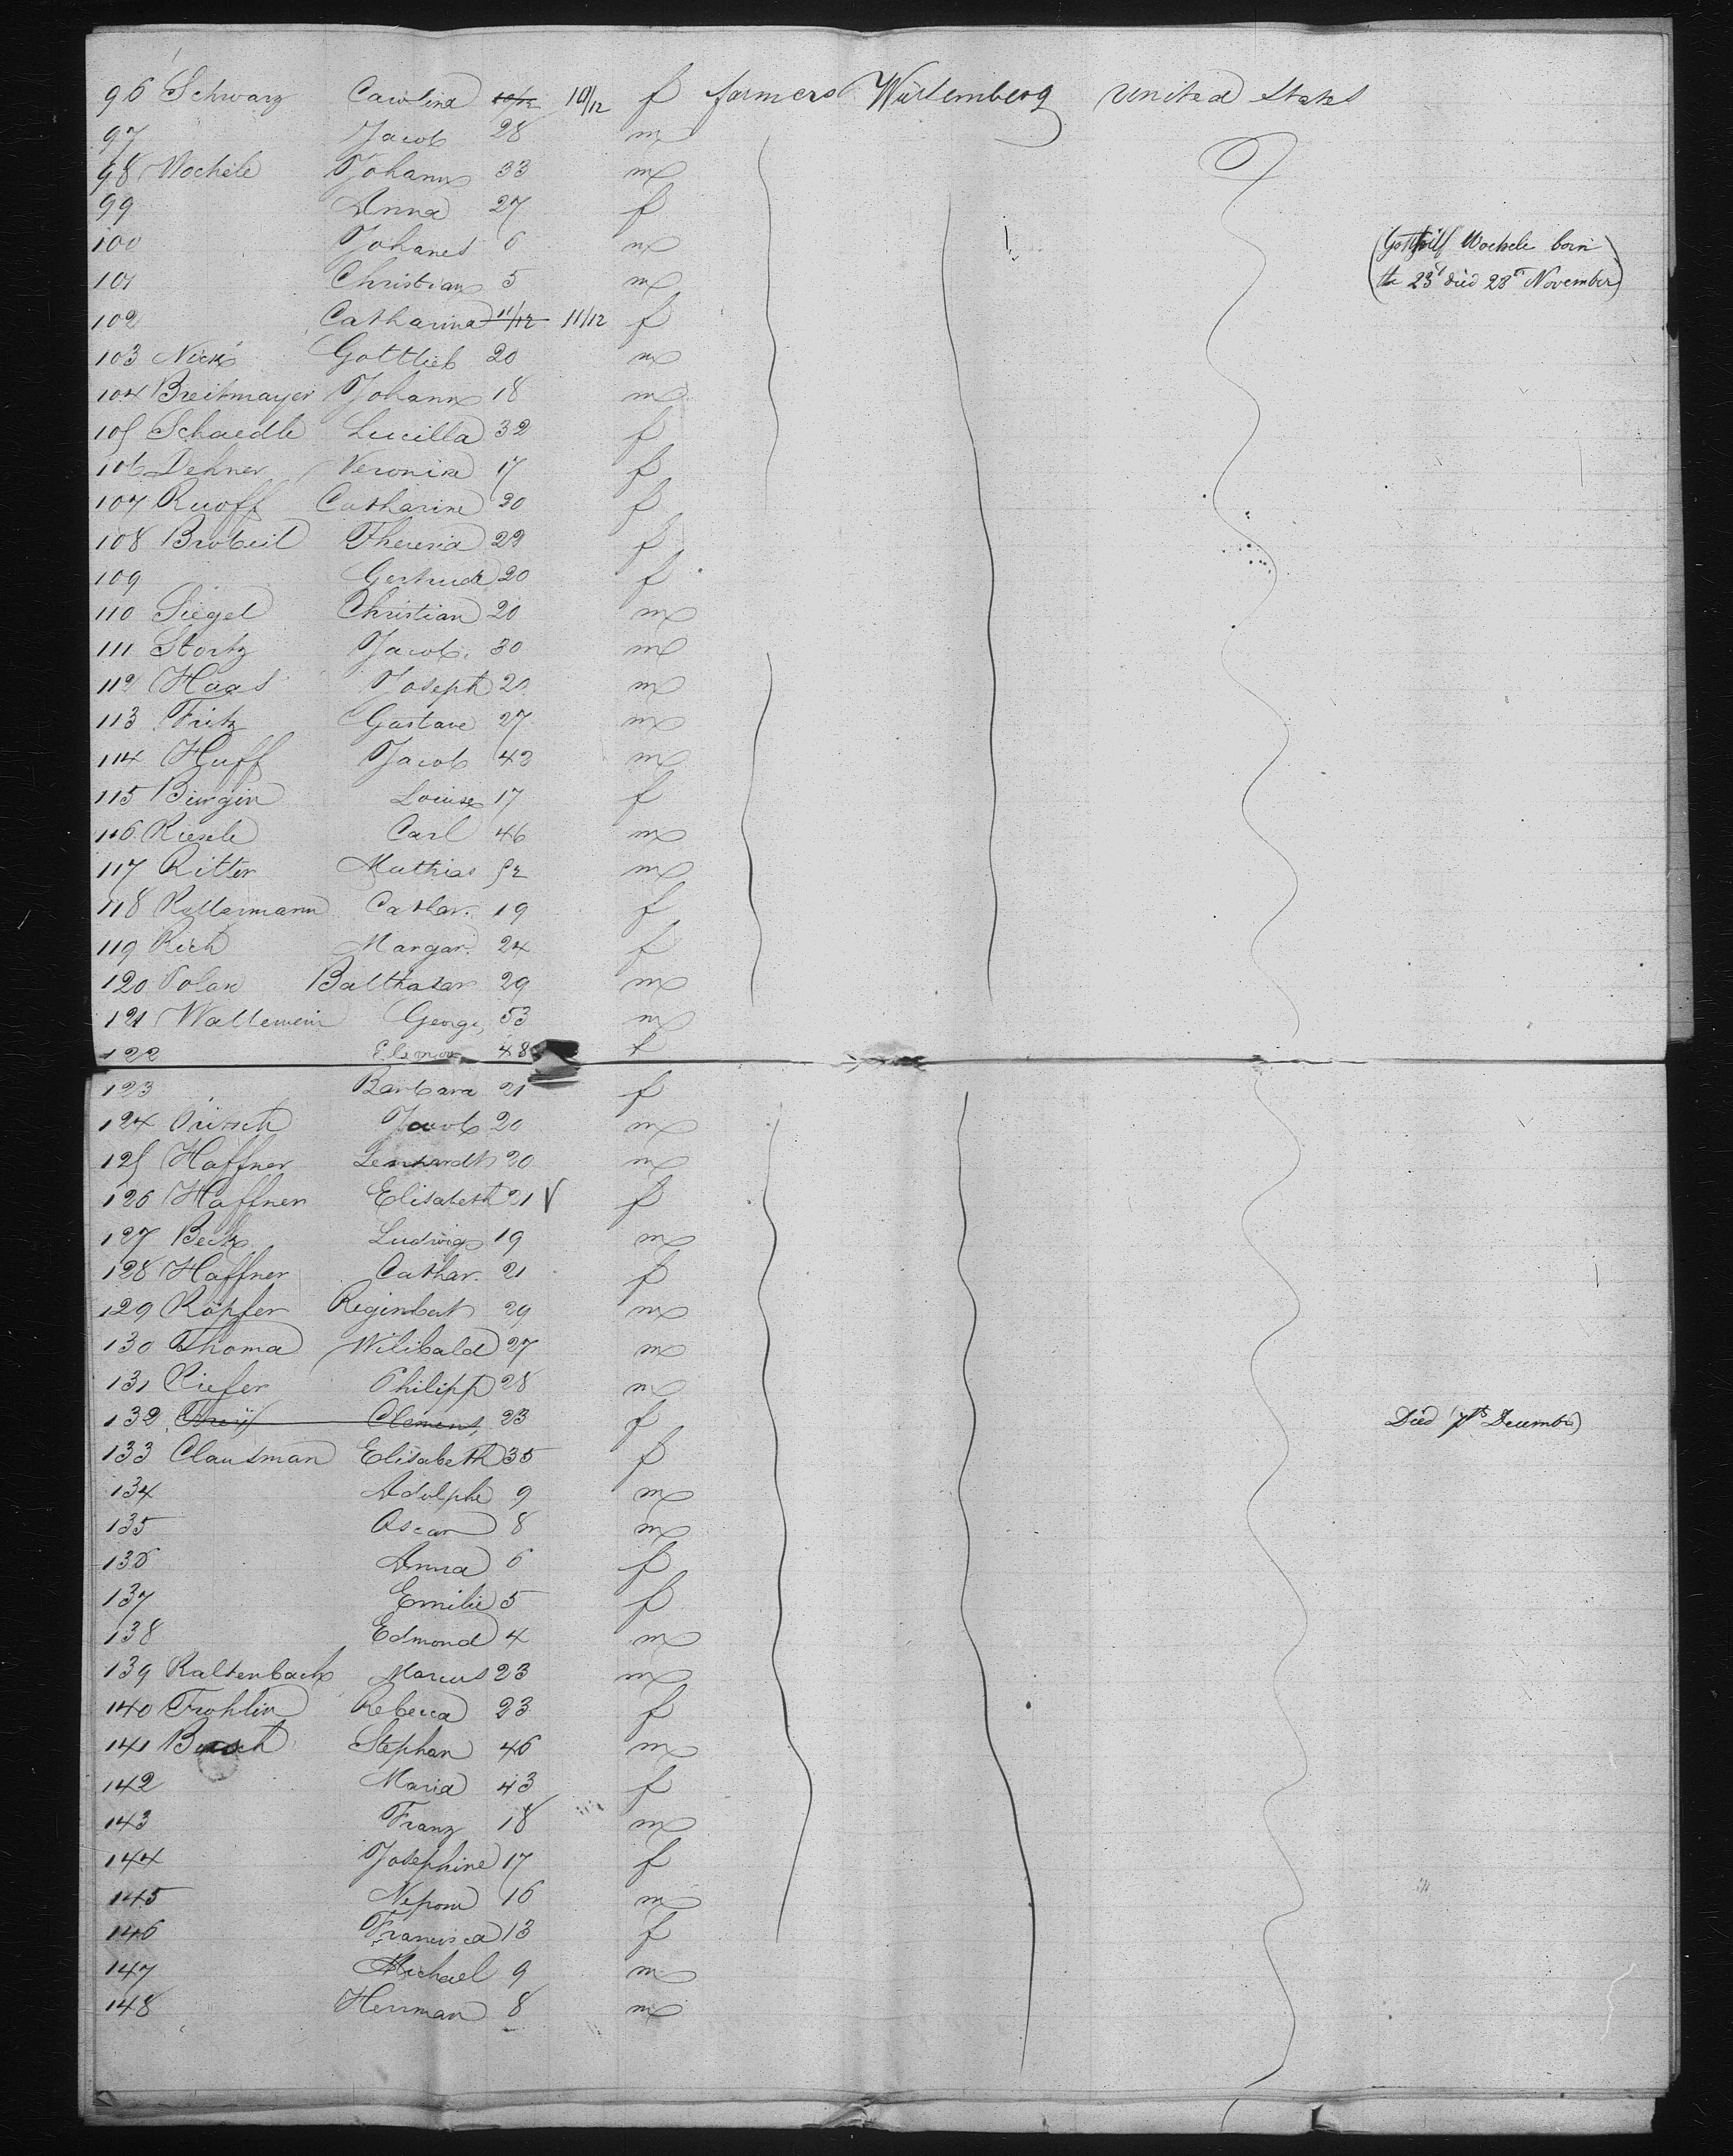 96 Schwarz Carolina 10/12 10/12 f farmers Würtemberg United States
97 Jacob 28 m
98 Wochele Johann 33 m
99 Anna 27 f
100 Johanes 6 m (Gotthilf Wochele born
101 Christian 5 m the 23d died 28th November)
102 Catharina 11/12 11/12 f
103 Nick Gottlieb 20 m
104 Breitmayer Johann 18 m
105 Schaedle Lucilla 32 f
106 Dehner Veronika 17 f
107 Ruoff Catharine 20 f
108 Brobeil Theresia 22 f
109 Gertrude 20 f
110 Siegel Christian 20 m
111 Stortz Jacob 30 m
112 Haas Joseph 20 m
113 Fritz Gustave 27 m
114 Huff Jacob 43 m
115 Bürgin Louise 17 f
116 Riesele Carl 46 m
117 Ritter Mathias 52 m
118 Kellermann Cathar. 19 f
119 Rich Margar. 24 f
120 Polak Balthasar 29 m
121 Wallewein George 53 m
122 Eleonor 48 f
123 Barbara 21 f
124 Jacob 20 m
125 Haffner Lenhardt 20 m
126 Haffner Elisabeth 21 V f
127 Beck Ludwig 19 m
128 Haffner Cathar. 21 f
129 Köpfer Reginbert 29 m
130 Thoma Wilibald 27 m
131 Kiefer Philipp 28 m
132 Clement 23 f Died 7th December
133 Clausman Elisabeth 35 f
134 Adolphe 9 m
135 Oscar 8 m
136 Anna 6 f
137 Emilie 5 f
138 Edmond 4 m
139 Kaltenbach Marcus 23 m
140 Frohlin Rebecca 23 f
141 Busch Stephan 46 m
142 Maria 43 f
143 Franz 18 m
144 Josephine 17 f
145 Nepom 16 m
146 Francisca 13 f
147 Michael 9 m
148 Herman 8 m